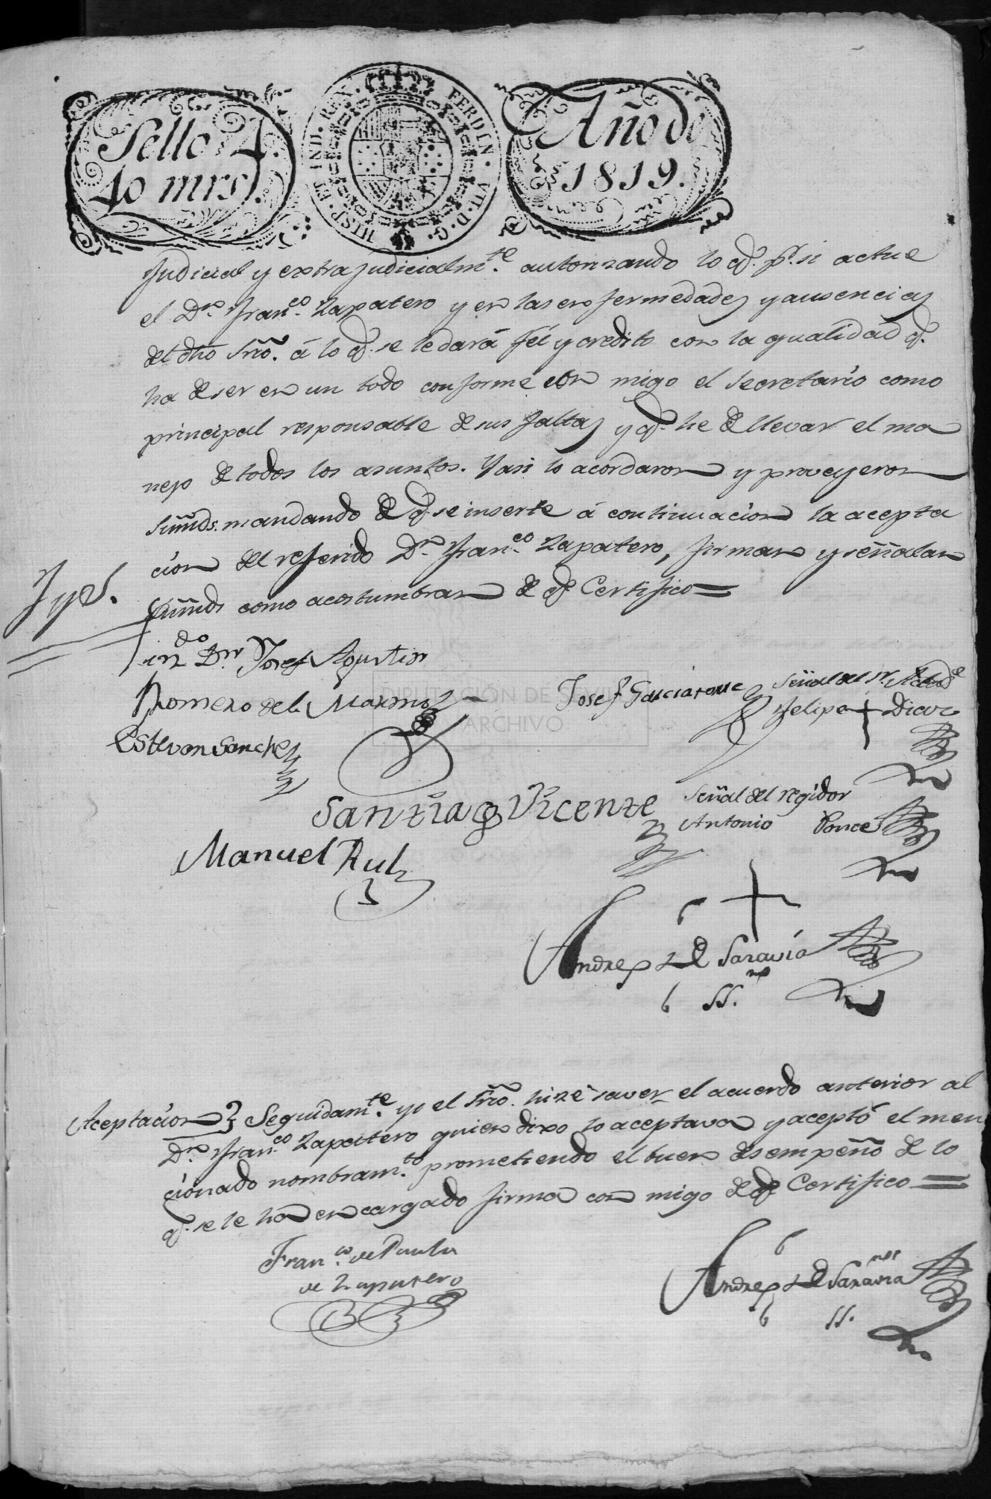 Sello 4.
40 mrs.
HISP. ET IND. REX. FERDIN. VII. D. G.
Año de
1819.
Judicial y extrajudicialm.te autorizando lo q.e p.r si actue
el D.n Fran.co Zapatero y en las enfermedades y ausencias
del dho Srio. á lo q.e se le dará fé y credito con la qualidad q.e
ha de ser en un todo conforme con migo el Secretario como
principal responsable de sus faltas y q.e he de llevar el ma
nejo de todos los asuntos. Y asi lo acordaron y proveyeron
Sumds. mandando de q.e se inserte á continuacion la acepta
cion del referido D.n Fran.co Zapatero, firman y señalan
Sumds como acostumbran de q.e Certifico=
Josef Agustin
Romero de la
Josef Garcia
Señal del
Felipe + Diaz
Estevan Sanchez
Santiago Vicente
Señal del regidor
Antonio Ponce
Manuel Ruiz
+
Andres de Saravia
SS.
Aceptacion Seguidam.te yo el Srio. hize saver el acuerdo anterior al
D.n Fran.co Zapatero quien dixo lo aceptava y aceptó el men
cionado nombram.to prometiendo el buen desempeño de lo
q.e se le ha encargado firma con migo de q.e Certifico=
Fran.co de Paula
de Zapatero
Andres de Saravia
SS.
DIPUTACIÓN DE
ARCHIVO